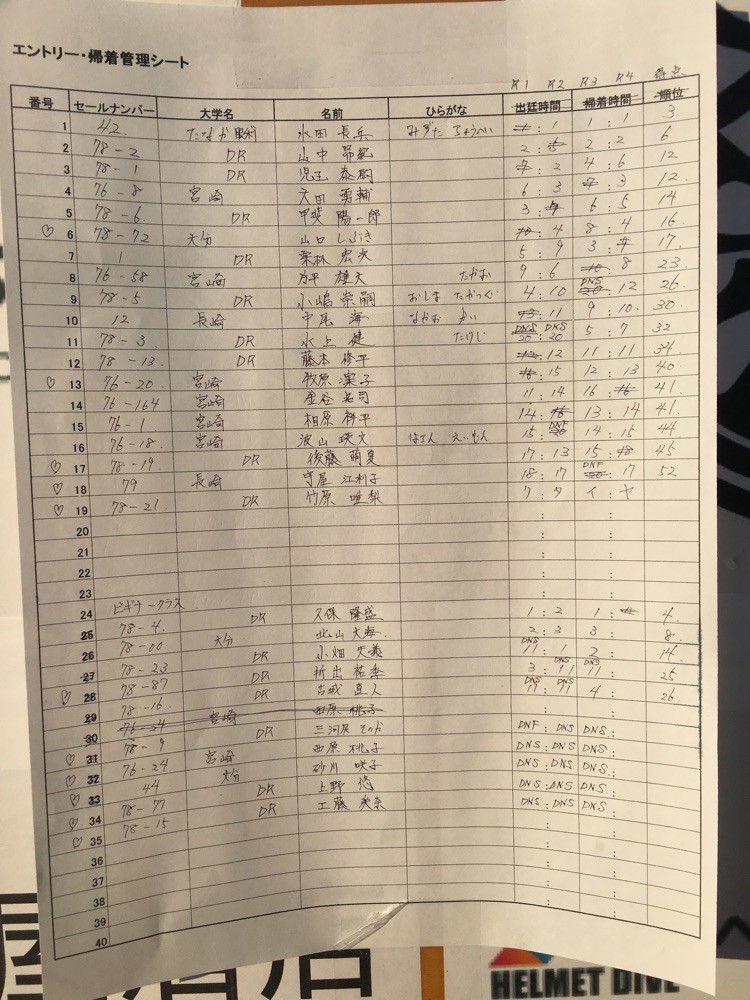 エントリー・帰着管理シート
R1 R2 R3 R4 得点
番号 セールナンバー 大学名 名前 ひらがな 出廷時間 帰着時間 順位
1 42 たなか眼科 水田 長兵 みずた ちょうべい 1 : 1 1 : 1 3
2 78-2 DR 山中 昂紀 2 : 5 2 : 2 6
3 78-1 DR 児玉 泰樹 7 : 2 4 : 6 12
4 76-8 宮崎 勇輔 6 : 3 3 12
5 78-6 DR 甲斐 陽一郎 3 : 6 : 5 14
♡ 6 78-72 大分 山口 しぶき 10 : 4 8 : 4 16
7 1 DR 栗林 宏次 5 : 9 3 : 7 17
8 76-58 宮崎 雄大 たかお 9 : 6 10 : 8 23
9 78-5 DR 小嶋 崇嗣 おじま たかつぐ 4 : 10 DNS 20 : 12 26
10 12 長崎 中尾 海 なかお かい 13 : 11 9 : 10 30
11 78-3 DR 水上 健 たけし DNS 20 : DNS 20 5 : 7 32
12 78-13 DR 藤本 修平 12 : 12 11 : 11 34
♡ 13 76-20 宮崎 牧原 凜子 : 15 12 : 13 40
14 76-164 宮崎 11 : 14 16 : 16 41
15 76-1 宮崎 相原 料平 14 : 16 13 : 14 41
16 76-18 宮崎 波山 瑛文 はさん えいもん 15 : DNF 20 14 : 15 44
♡ 17 78-19 DR 後藤 萌夏 17 : 13 15 : 18 45
♡ 18 79 長崎 守屋 江利子 18 : 17 DNF 20 : 17 52
♡ 19 78-21 DR 竹原 唯梨 ワ : タ イ : ヤ
20 :
21 :
22 :
23 :
24 ビギナークラス
25 78-4 DR 久保 隆盛 1 : 2 1 : 4
26 78-00 大分 北山 大海 2 : 3 3 : 8
27 78-23 DR 小畑 DNS 11 : 1 2 : 14
28 78-87 DR 折出 祐季 3 : DNS 11 DNS 11 : 25
♡ 29 78-16 DR 古城 直人 DNS 11 : DNS 11 4 : 26
30 76-24 宮崎 西原 桃子 :
♡ 31 78-9 DR 三河尻 そのか DNF : DNS DNS :
♡ 32 76-24 宮崎 西原 桃子 DNS : DNS DNS :
♡ 33 44 大分 砂川 咲子 DNS : DNS DNS :
♡ 34 78-77 DR 上野 悠 DNS : DNS DNS :
♡ 35 78-15 DR 工藤 美奈 DNS : DNS DNS :
36 :
37 :
38 :
39 :
40 :
居酒店
HELMET DIVE